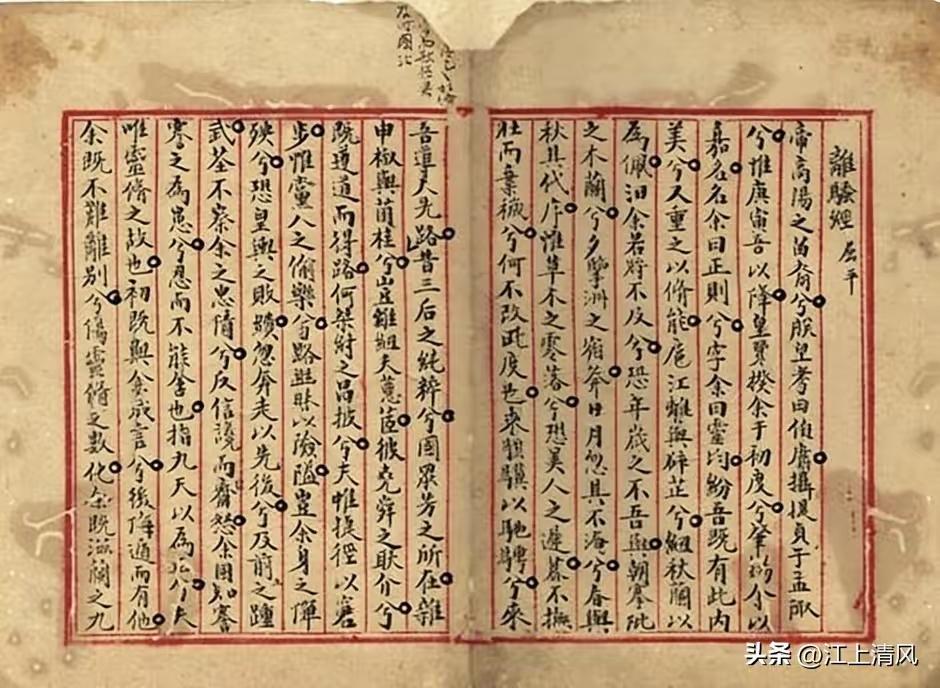 離騷經 屈平
帝高陽之苗裔兮朕皇考曰伯庸攝提貞于孟陬
兮惟庚寅吾以降皇覽揆余于初度兮肇錫余以
嘉名名余曰正則兮字余曰靈均紛吾既有此內
美兮又重之以脩能扈江離與辟芷兮紉秋蘭以
為佩汩余若將不及兮恐年歲之不吾與朝搴阰
之木蘭兮夕擥洲之宿莽日月忽其不淹兮春與
秋其代序惟草木之零落兮恐美人之遲暮不撫
壯而棄穢兮何不改此度也乘騏驥以馳騁兮來
吾道夫先路昔三后之純粹兮固眾芳之所在雜
申椒與菌桂兮豈維紉夫蕙茝彼堯舜之耿介兮
既遵道而得路何桀紂之昌披兮夫惟捷徑以窘
步惟黨人之偷樂兮路幽昧以險隘豈余身之憚
殃兮恐皇輿之敗績忽奔走以先後兮及前之踵
武荃不察余之忠情兮反信讒而齌怒余固知謇
謇之為患兮忍而不能舍也指九天以為正兮夫
唯靈脩之故也初既與余成言兮後悔遁而有他
余既不難離別兮傷靈脩之數化余既滋蘭之九
头条 @江上清风